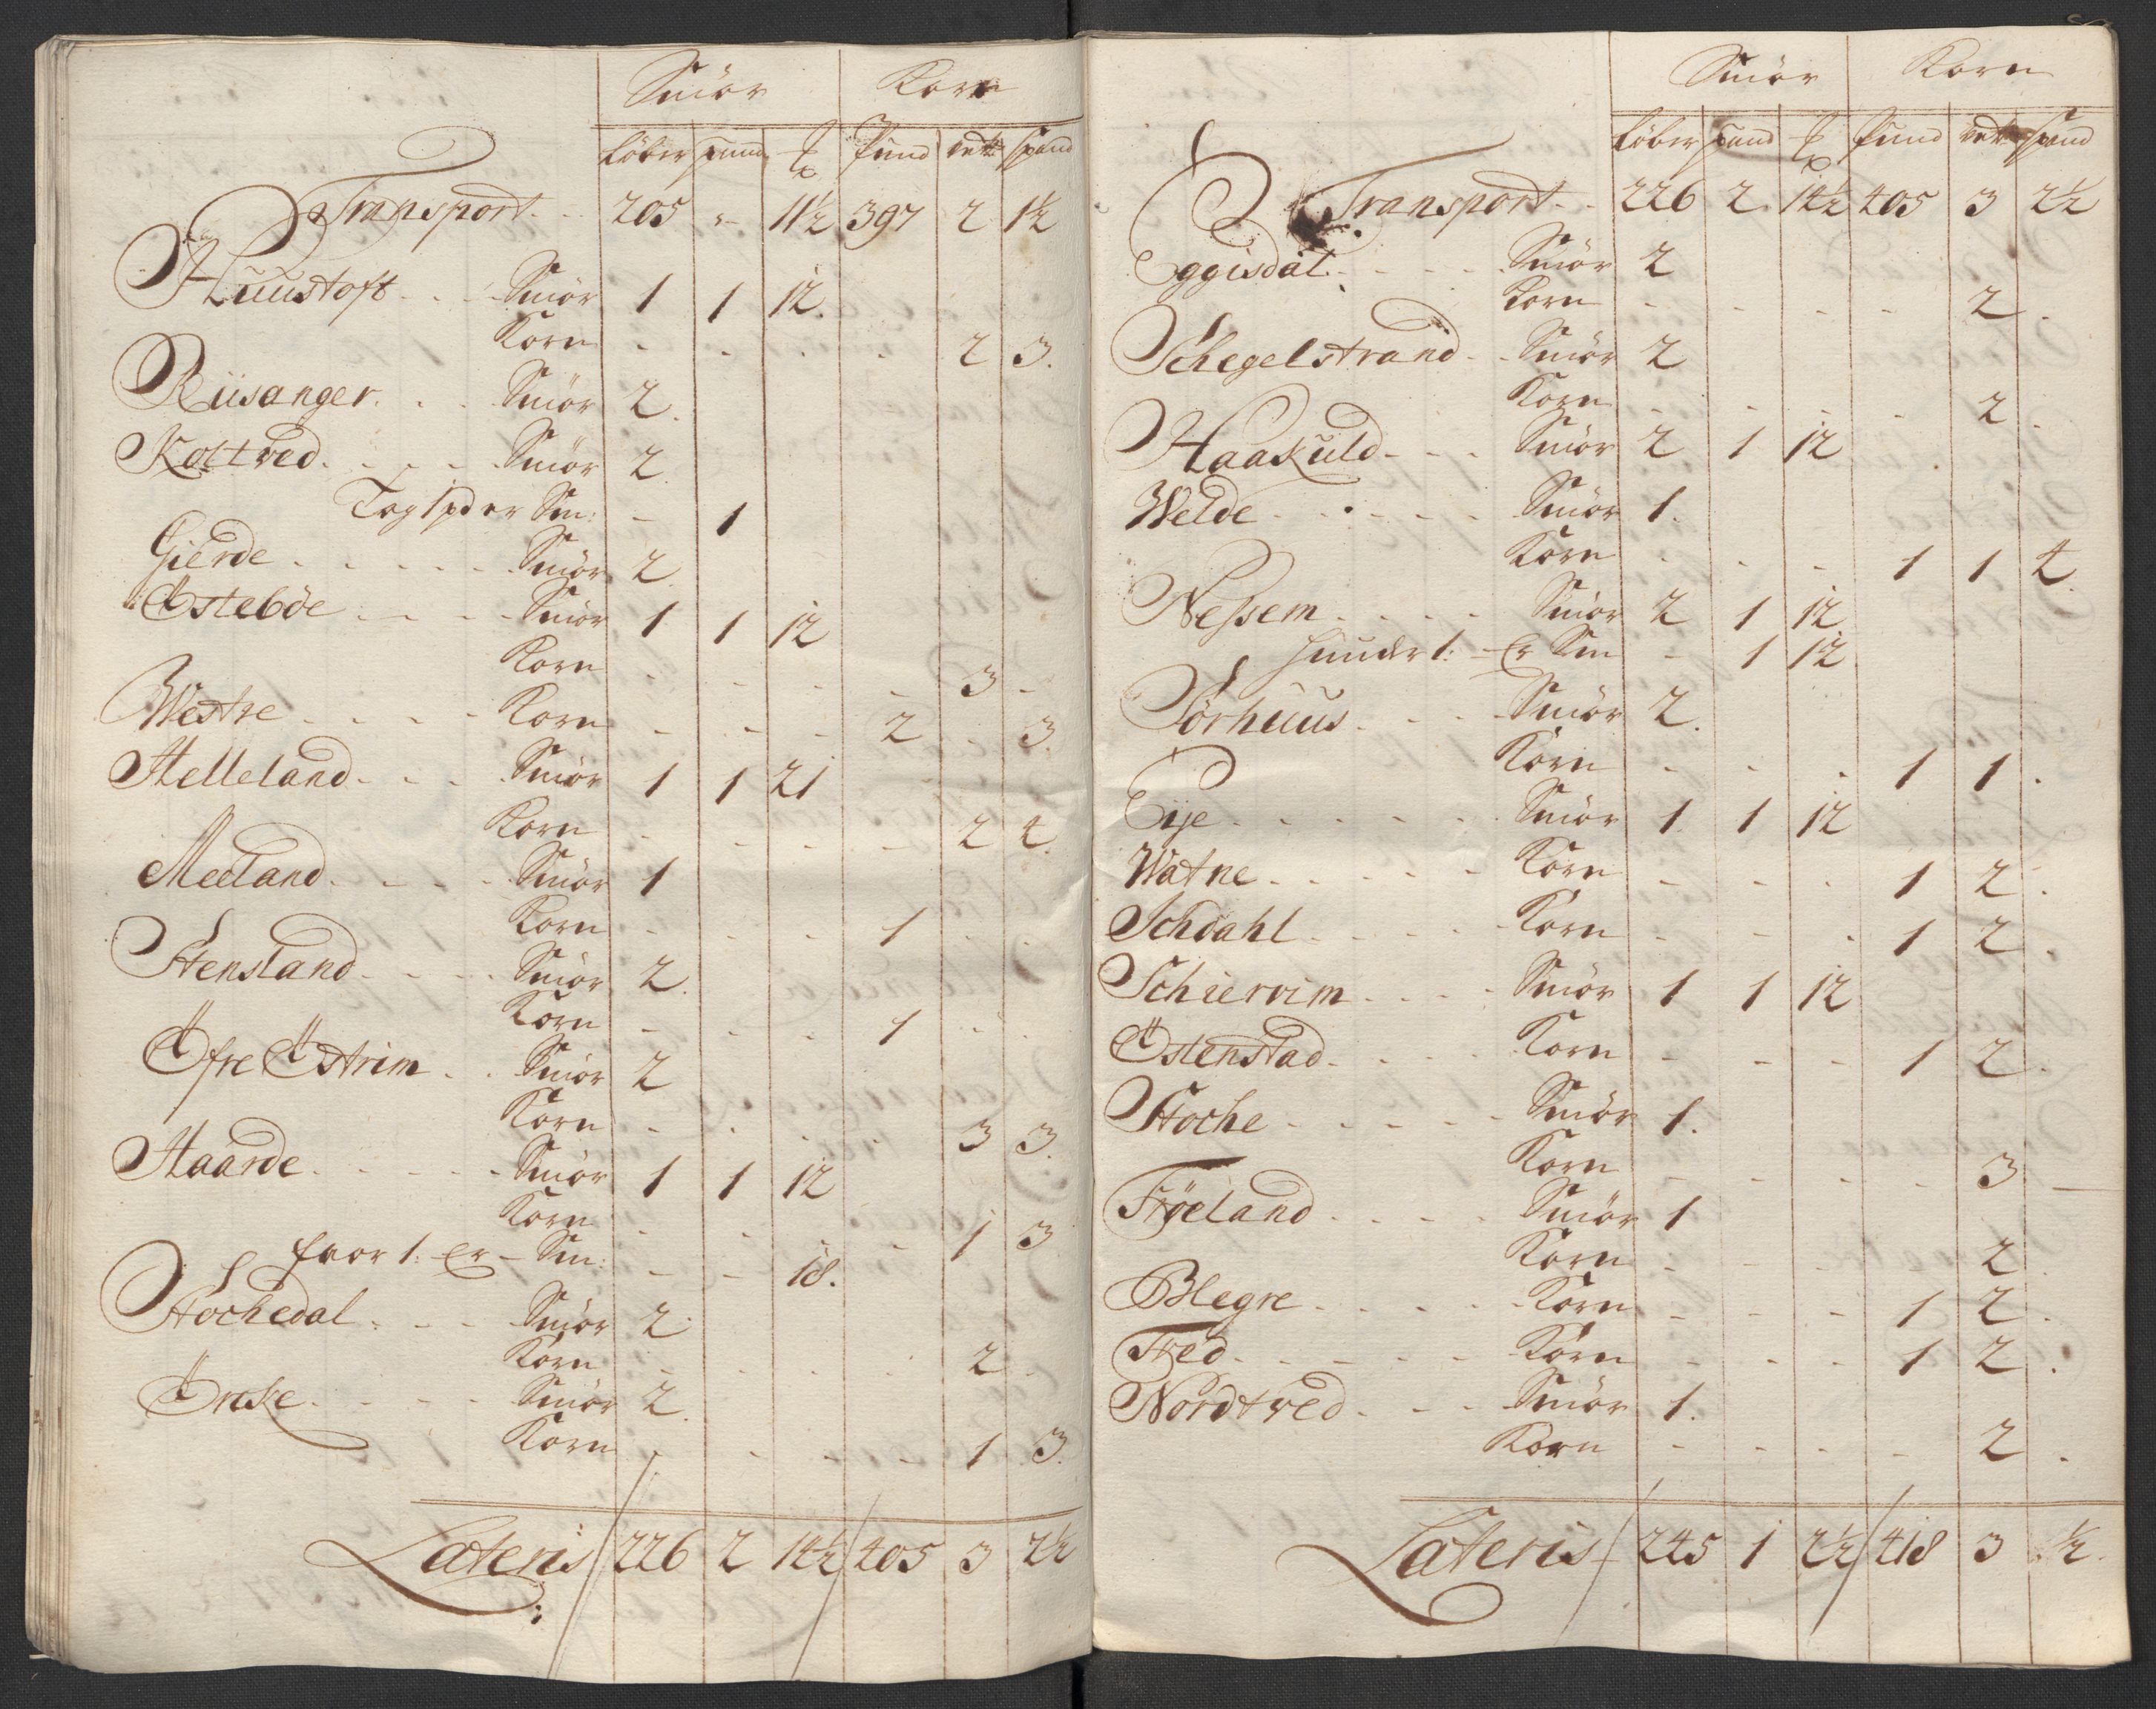 Smör Korn
Löber pund ℔ Pund vett: Spand
Transport. 205 - 11½ 397 2 1½
Huustoft Smör 1 1 12.
Korn - - - - 2 3.
Riisanger. Smör 2.
Koltved. Smör 2.
Tog 1 pd er Sm: - 1
Gierde Smör 2.
Østeböe Smör 1 1 12
Korn - - - - 3 -
Westre Korn - - - 2 - 3.
Helleland Smör 1 1 21
Korn - - - - 2 4.
Meeland Smör 1
Korn - - - 1 - -
Stensland Smör 2.
Korn - - - 1 - -
Øfre Østrim Smör 2
Korn - - - - 3 3.
Haarde Smör 1 1 12
Korn - - - - 1 3
faor 1: Er - Sm: - - 18.
Stochedal Smör 2.
Korn - - - - 2 -
Ørske Smör 2.
Korn - - - - 1 3.
Lateris 226 2 14½ 405 3 2½
Smör Korn
Löber pund ℔ Pund vett: Spand
Transport 226 2. 14½ 405 3 2½
Eggisdal Smör 2
Korn - - - - 2 .
Schegelstrand Smör 2
Korn - - - - 2 .
Haakuld Smör 2 1 12
Welde Smör 1.
Korn - - - 1 1 4.
Nessem Smör 2 1 12
huudr 1: Er Sm - 1 12
Sörhuus Smör 2.
Korn - - - 1 1 .
Eije Smör 1 1 12
Watne Korn - - - 1 2 .
Schdahl Korn - - - 1 2 .
Schiervim Smör 1 1 12
Østenstad Korn - - - 1 2 .
Stoche Smör 1.
Korn - - - - 3 -
Fröeland Smör 1
Korn - - - - 2
Blegre Korn - - - 1 2 .
Tved Korn - - - 1 2 .
Nordtved Smör 1.
Korn - - - - 2 .
Lateris 245 1 2½ 418 3 ½.